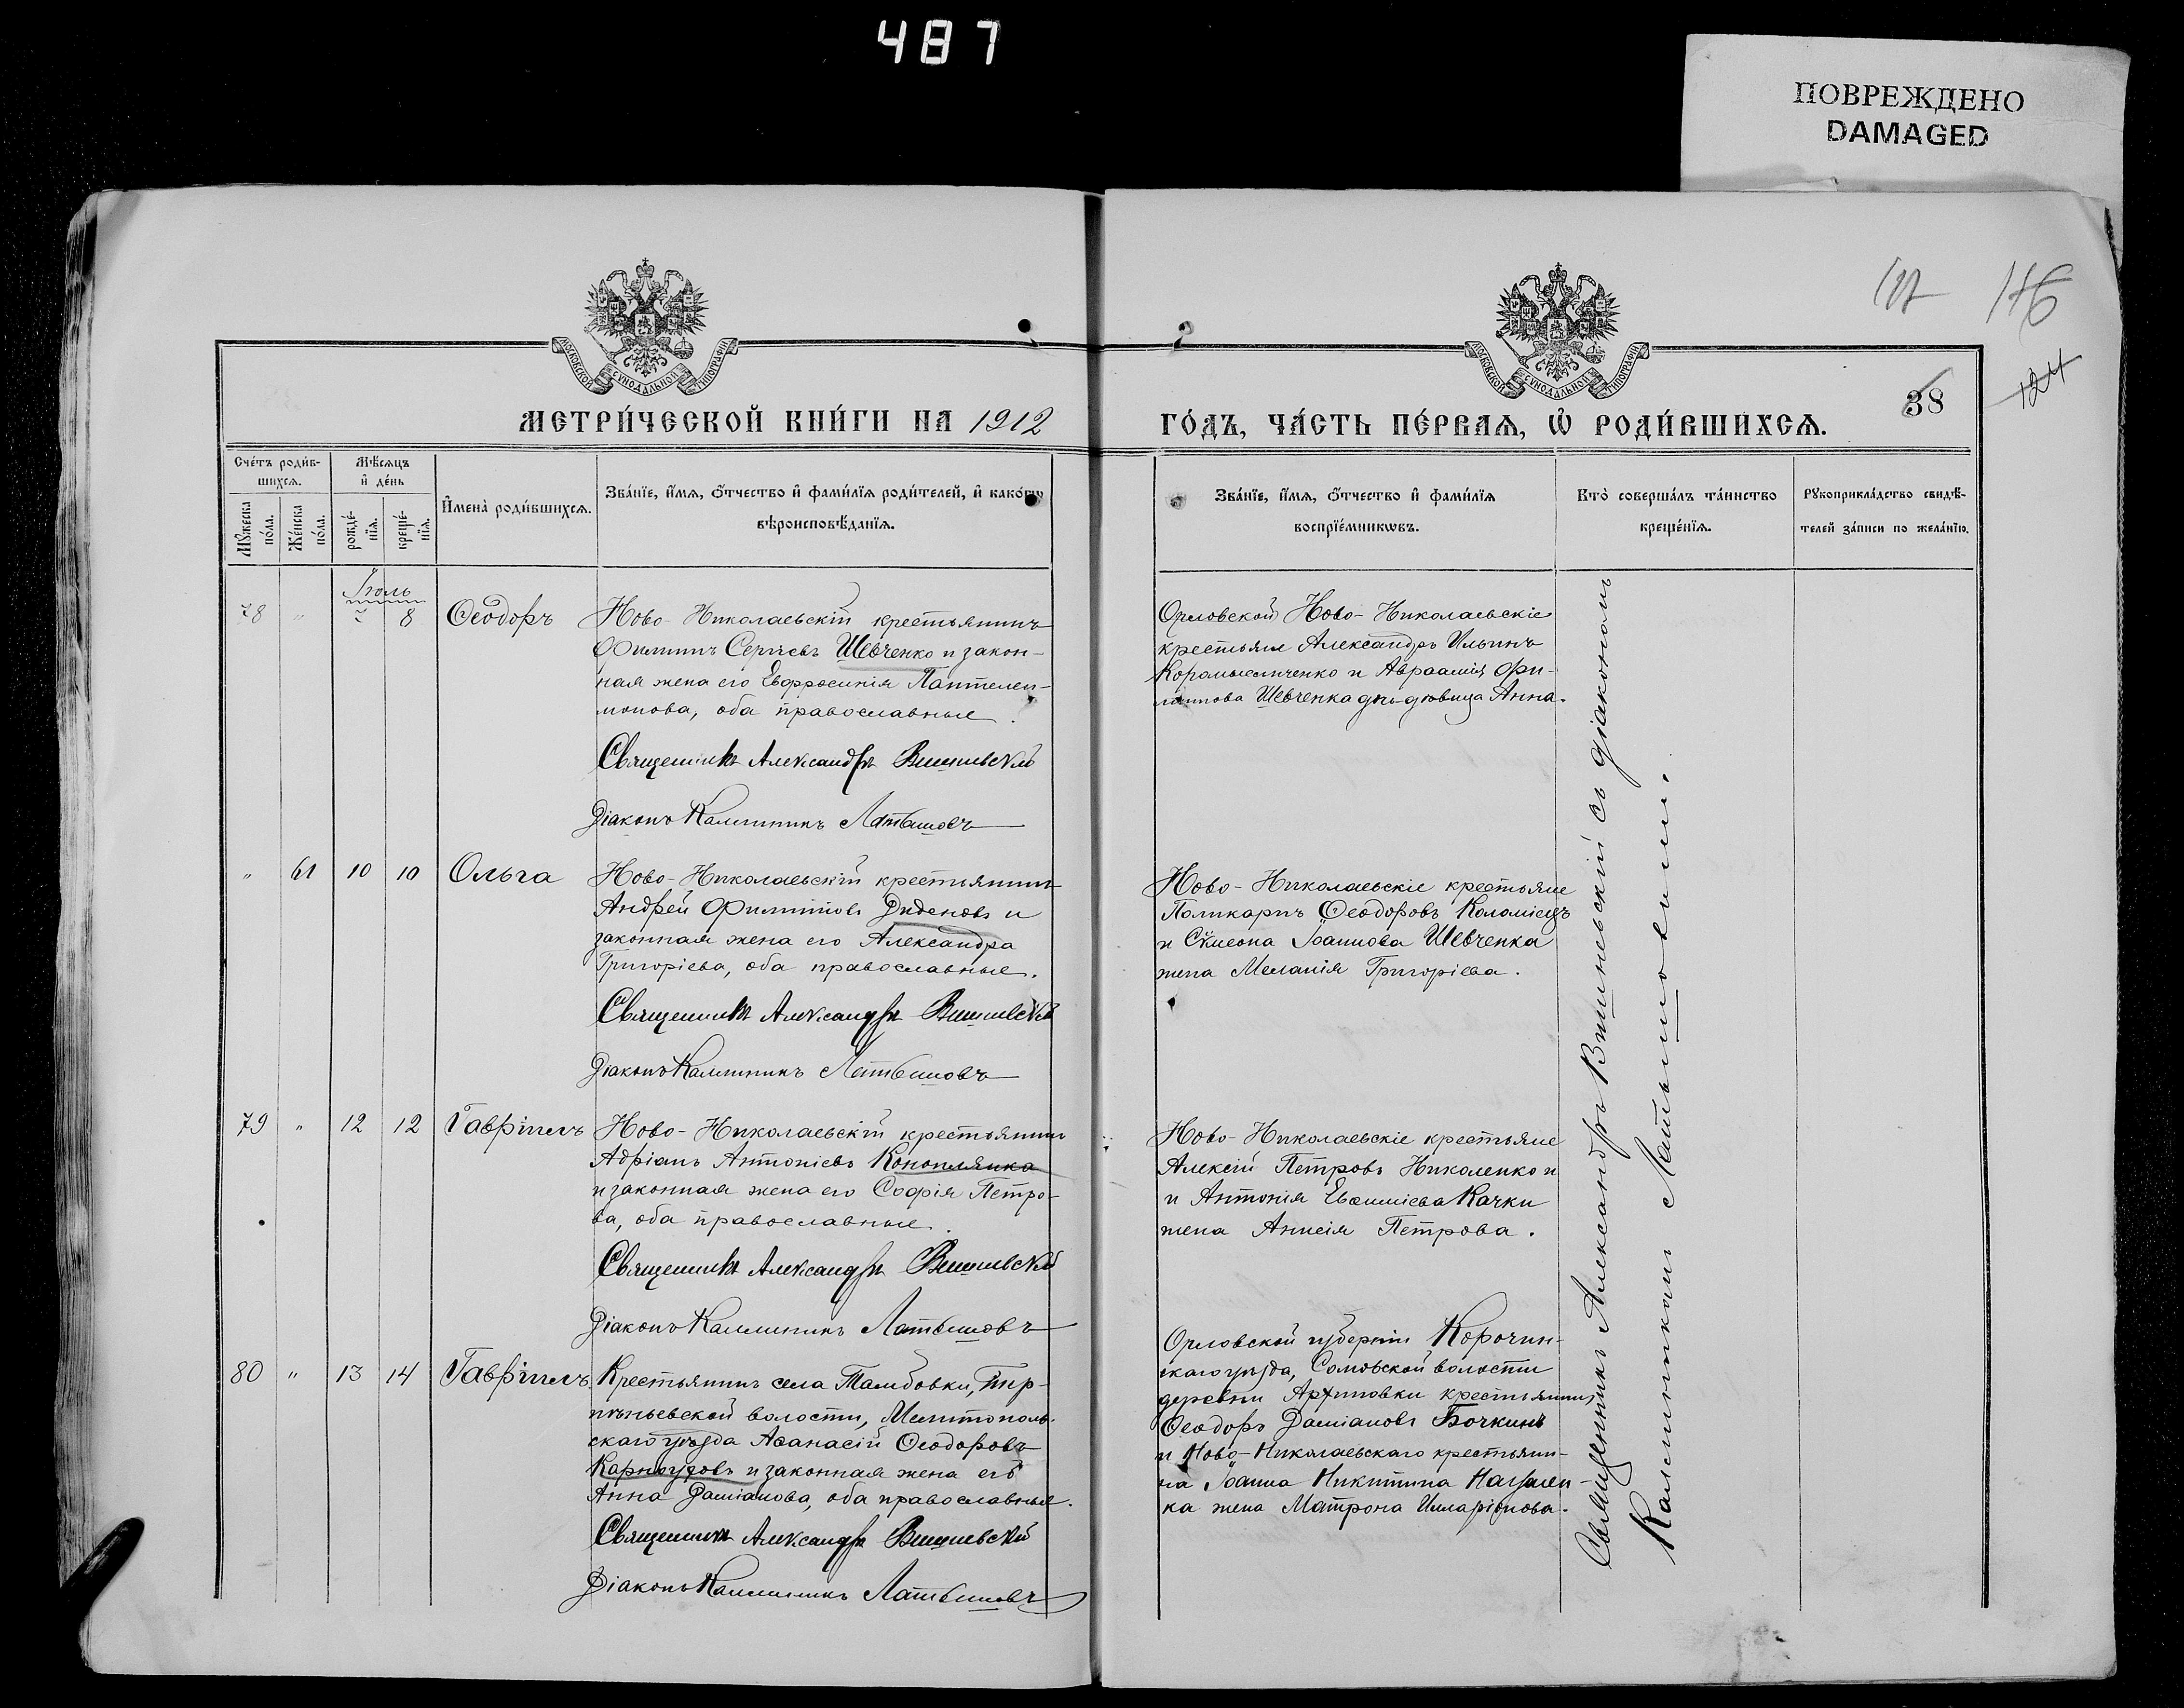 487
ПОВРЕЖДЕНО
DAMAGED
117 116
124
38
МОСКОВСКОЙ СѴНОДАЛЬНОЙ ТИПОГРАФІИ
МОСКОВСКОЙ СѴНОДАЛЬНОЙ ТИПОГРАФІИ
МЕТРИ́ЧЕСКОЙ КНИ́ГИ НА 1912
ГО́ДЪ, ЧА́СТЬ ПЕ́РВАѦ, Ѽ РОДИ́ВШИХСѦ.
Сче́тъ роди́в-
шихсѧ.
Мꙋжеска по́ла.
Же́нска по́ла.
Мѣ́сѧцъ
и҆ де́нь
рожде́-
нїѧ.
креще́-
нїѧ.
И҆мена̀ роди́вшихсѧ.
Зва́нїе, и҆́мѧ, ѻ҆́тчество и҆ фами́лїѧ роди́телей, и҆ како́гѡ
вѣроисповѣ́данїѧ.
Зва́нїе, и҆́мѧ, ѻ҆́тчество и҆ фами́лїѧ
воспрїе́мникѡвъ.
Кто̀ соверша́лъ та́инство
креще́нїѧ.
Рꙋкоприкла́дство свидѣ́-
телей за́писи по жела́нїю.
Іюль
78 " 8 Ѳеодоръ
Ново-Николаевскій крестьянинъ
Филиппъ Сергіевъ Шевченко и закон-
ная жена его Евфросинія Пантелеи-
монова, оба православные.
Священникъ Александръ Вишневскій
Діаконъ Каллиникъ Латышовъ
Орловской Ново-Николаевскіе
крестьяне Александръ Ильинъ
Коромысличенко и Авраамія Фи-
липпова Шевченка дѣвица Анна.
" 61 10 10 Ольга
Ново-Николаевскій крестьянинъ
Андрей Филипповъ Диденовъ и
законная жена его Александра
Григоріева, оба православные.
Священникъ Александръ Вишневскій
Діаконъ Каллиникъ Латышовъ
Ново-Николаевскіе крестьяне
Поликарпъ Ѳеодоровъ Коломіецъ
и Сѵмеона Іоаннова Шевченка
жена Меланія Григоріева.
79 " 12 12 Гавріилъ
Ново-Николаевскій крестьянинъ
Адріанъ Антоніевъ Коноплянка
и законная жена его Софія Петро-
ва, оба православные.
Священникъ Александръ Вишневскій
Діаконъ Каллиникъ Латышовъ
Ново-Николаевскіе крестьяне
Алексій Петровъ Николенко и
и Антонія Евѳиміева Качки
жена Анисія Петрова.
80 " 13 14 Гавріилъ
Крестьянинъ села Тамбовки, Тер-
пѣньевской волости, Мелитополь-
скаго уѣзда Аѳанасій Ѳеодоровъ
Карнаузовъ и законная жена его
Анна Даміанова, оба православные.
Священникъ Александръ Вишневскій
Діаконъ Каллиникъ Латышовъ
Орловской губерніи Корочин-
скаго уѣзда, Сомовской волости
деревни Архиповки крестьянинъ
Ѳеодоръ Даміановъ Бочкинъ
и Ново-Николаевскаго крестьяни-
на Іоанна Никитина
ка жена Матрона Илларіонова.
Священникъ Александръ Вишневскій съ діакономъ
Каллиникомъ Латышовымъ.